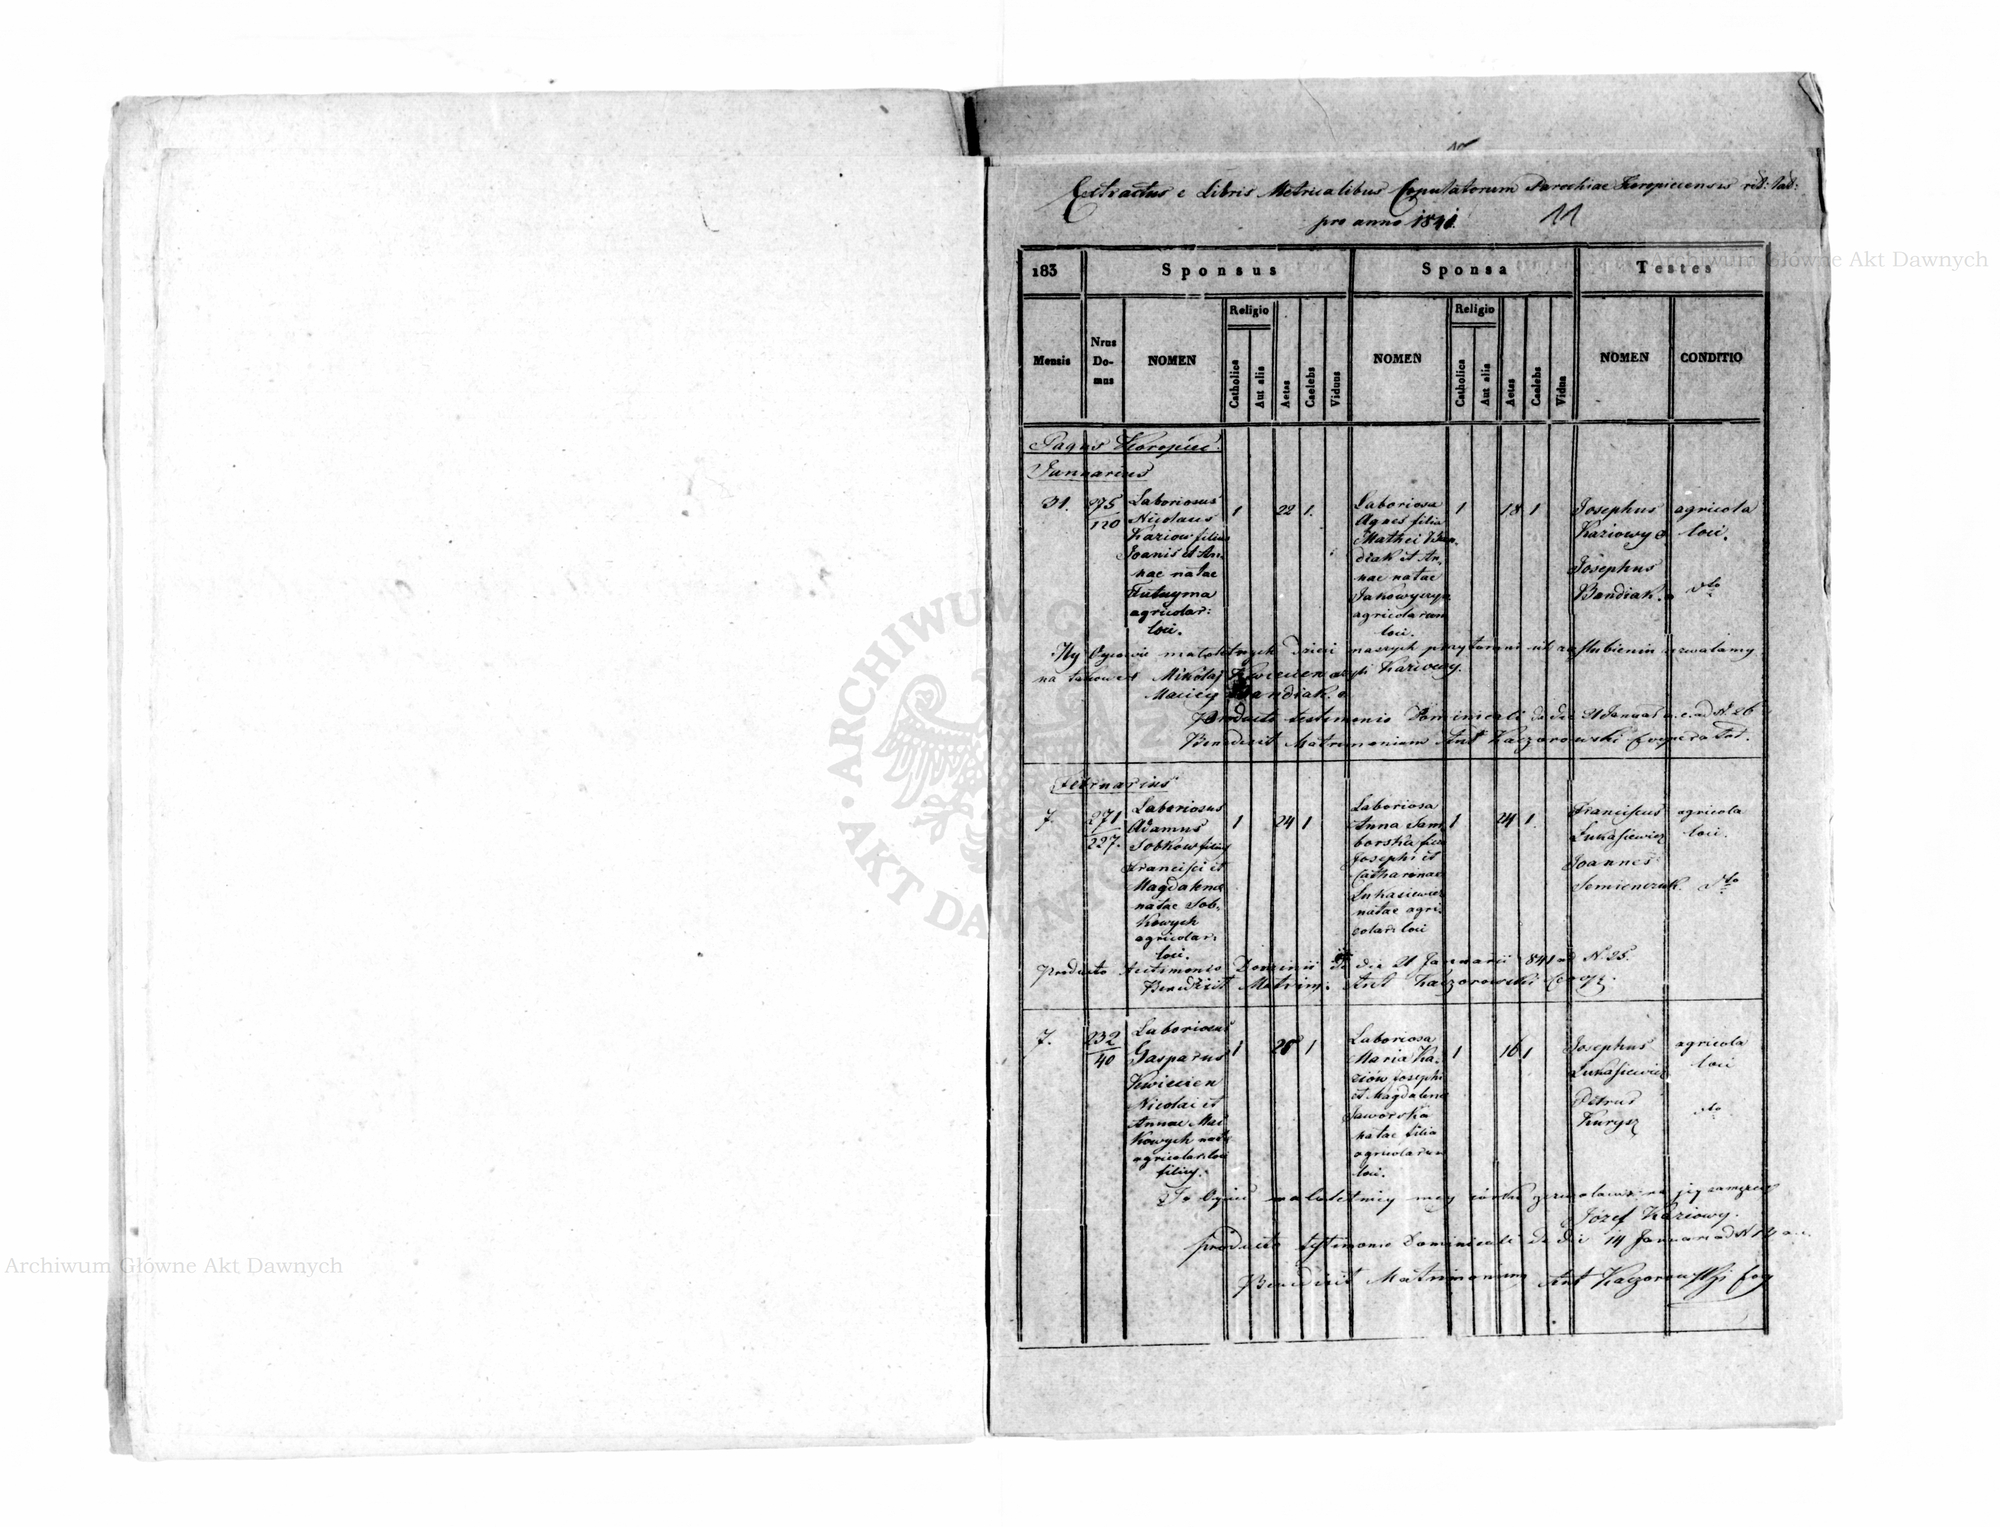 Extractus e Libris Metricalibus Copulatorum Parochiae Koropiecensis rit: lat:
pro anno 1841.
11
183
Sponsus
Sponsa
Testes
Mensis
Nrus Do-mus
NOMEN
Religio
Catholica
Aut alia
Aetas
Caelebs
Viduus
NOMEN
Religio
Catholica
Aut alia
Aetas
Caelebs
Vidua
NOMEN
CONDITIO
Pagus Koropiec.
Januarius
31.
275
120
Laboriosus
Nicolaus
Kaziow filius
Joanis et An-
nae natae
agricolar:
loci.
1
22
1.
Laboriosa
Agnes filia
Mathei Ban-
diak et An-
nae natae
agricolarum
loci.
1
18
1
Josephus
Kaziowy
Josephus
Bandiak.
agricola
loci.
dto
My Oycowie maloletnych dzieci naszych przytomni
Mikołaj Kwiecien Kaziowy.
Maciey Bandiak.
Producto testimonio Dominicali de die 21 Januar a. c. ad N 26
Benedixit Matrimonium Ant Kaczorowski
Februarius
7.
271
227.
Laboriosus
Adamus
Sobkow filius
Francisci et
Magdalenae
natae Sob-
kowych
agricolar:
loci.
1
24
1
Laboriosa
Anna Sam
borska filia
Josephi et
Catharinae
Lukasiewicz
natae agri-
colar: loci
1
24
1.
Franciscus
Lukasiewicz
Joannes
Semienczuk.
agricola
loci.
dto
Producto testimonio Dominii de die 21 Januarii 841 ad N. 25.
Benedixit Matrim: Ant Kaczorowski Coop.
7.
232
40
Laboriosus
Gasparus
Kwiecien
Nicolai et
Annae
agricolar: loci
filius.
1
26
1
Laboriosa
Maria Ka-
ziow Josephi
et Magdalenae
Jaworska
natae filia
agricolarum
loci.
1
16
1
Josephus
Lukasiewicz
Petrus
Kurysz
agricola
loci
dto
Józef Kaziowy.
Producto testimonio Dominicali de die 14 Januarii ad N
Benedixit Matrimonium Ant Kaczorowski Coop
Archiwum Główne Akt Dawnych
Archiwum Główne Akt Dawnych
ARCHIWUM G
AKT DAWNYC